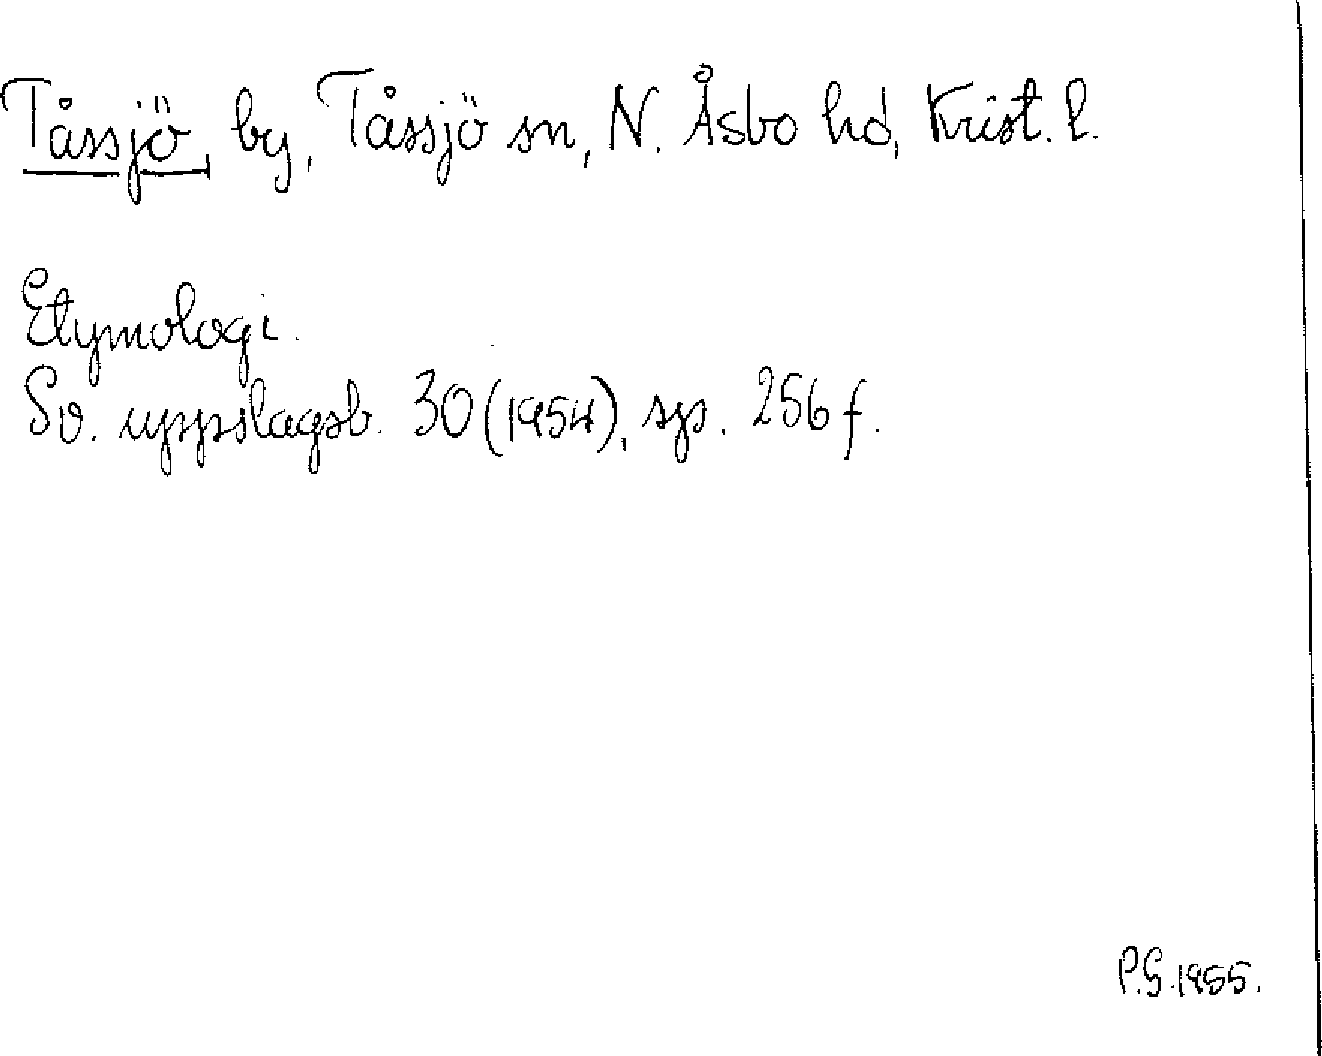 Tåssjö, by, Tåssjö sn, N. Åsbo hd, Krist. l.
Etymologi.
Sv. uppslagsb. 30 (1954), sp. 256 f.
P.G. 1955.